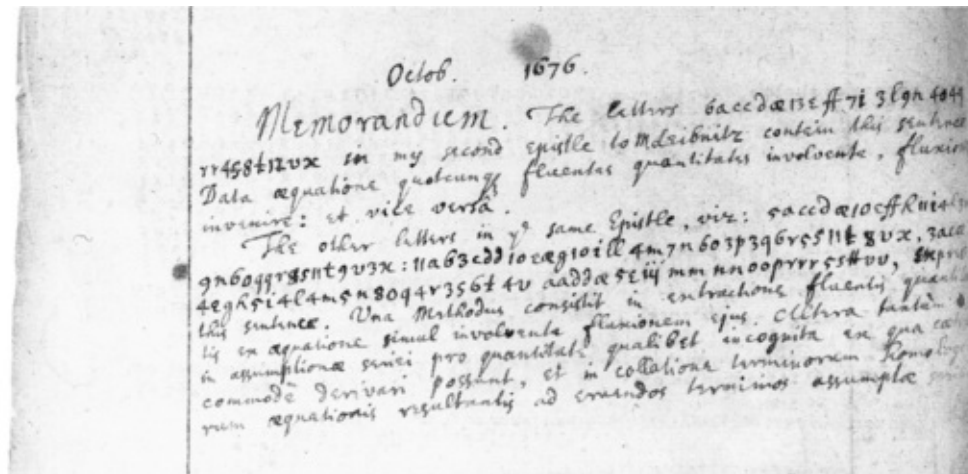 Octob. 1676.
Memorandum. The letters 6accdæ13eff7i3l9n4o4q
rr4s8t12vx in my second Epistle to M. Leibnitz contein this sentence
Data æquatione quotcunq fluentes quantitates involvente, fluxiones
invenire: et vice versâ.
The other letters in yᵉ same Epistle, viz: 5accdæ10effh11i4l3m
9n6oqqr8s11t9v3x: 11ab3cdd10eæg10ill4m7n6o3p3q6r5s11t8vx, 3acæ
4egh5i4l4m5n8oq4r3s6t4v aaddæ5eiijmmnnooprrr5sttvv, express
this sentence. Una Methodus consistit in extractione fluentis quantita
tis ex æquatione simul involvente fluxionem ejus. Altera tantùm
in assumptione seriei pro quantitate qualibet incognita ex qua cætera
commodè derivari possunt, et in collatione terminorum homologo
rum æquationis resultantis ad eruendos terminos assumptæ seriei